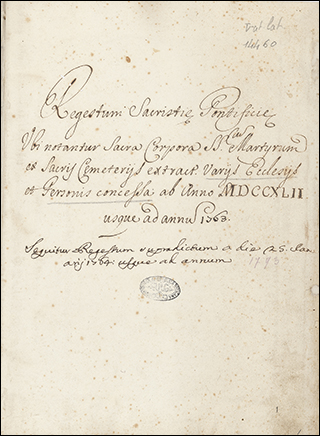 Vat. lat.
14460
Regestum Sacristie Pontificie
Ubi notantur Sacra Corpora SS. Martyrum
ex Sacris Cemeterijs extract. Varijs Eclesijs
et Personis concessa ab Anno MDCCXLII
usque ad annū 1763.
Sequitur Regestum supradictum a die 25. Jan
arij 1764. usque ad annum